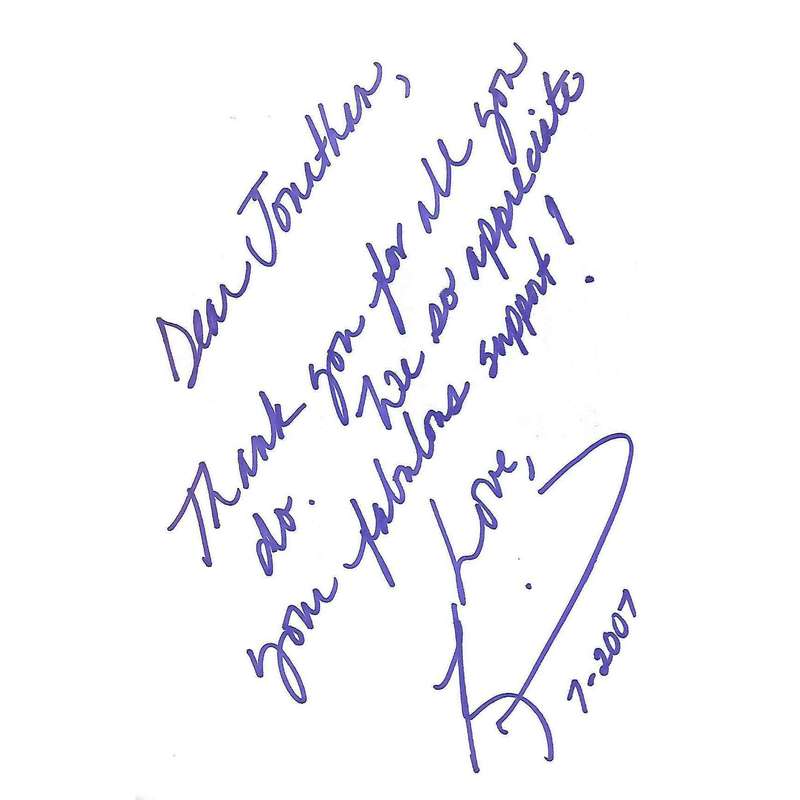 Dear Jonathan,
Thank you for all you
do. We so appreciate
your fabulous support!
Love,
7-2007